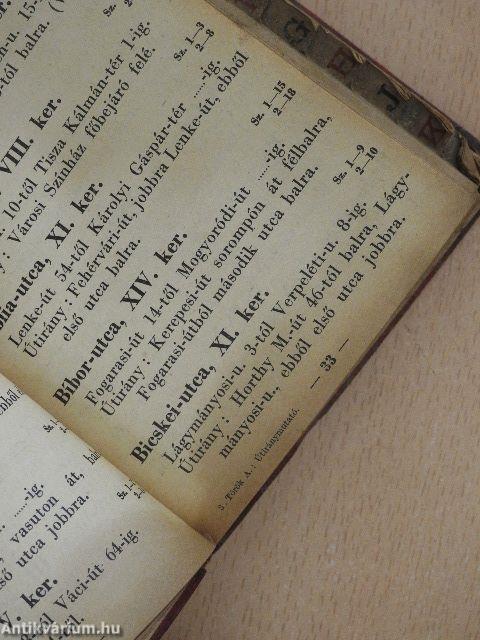 u. 15-
től balra. (V
VIII. ker.
10-től Tisza Kálmán-tér 1-ig.
Sz. 1—3
2—8
Városi Színház főbejáró felé.
utca, XI. ker.
Lenke-út 54-től Károlyi Gáspár-tér ......-ig.
Útirány: Fehérvári-út, jobbra Lenke-út, ebből
első utca balra.
Sz. 1—15
2—18
Bibor-utca, XIV. ker.
Fogarasi-út 14-től Mogyoródi-út ......-ig.
Útirány: Kerepesi-út sorompón át félbalra,
Fogarasi-útból második utca balra.
Sz. 1—9
2—10
Bicskei-utca, XI. ker.
Lágymányosi-u. 3-tól Verpeléti-u. 8-ig.
Útirány: Horthy M.-út 46-tól balra, Lágy-
mányosi-u., ebből első utca jobbra.
— 33 —
3 Török A.: Útiránymutató.
ebből
Sz. 1—
......-ig.
vasuton át,
utca jobbra.
Sz. 1—
2—
V. ker.
Váci-út 64-ig.
G
H
J
K
Antikvárium.hu